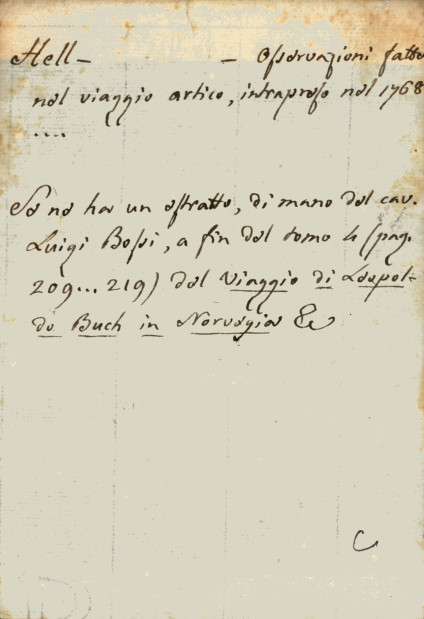 Hell - - Osservazioni fatte
nel viaggio artico, intrapreso nel 1768
....
Se ne ha un estratto, di mano del cav.
Luigi Bossi, a fin del tomo 4 (pag.
209... 219) del Viaggio di Leopol-
do Buch in Norvegia &c
C